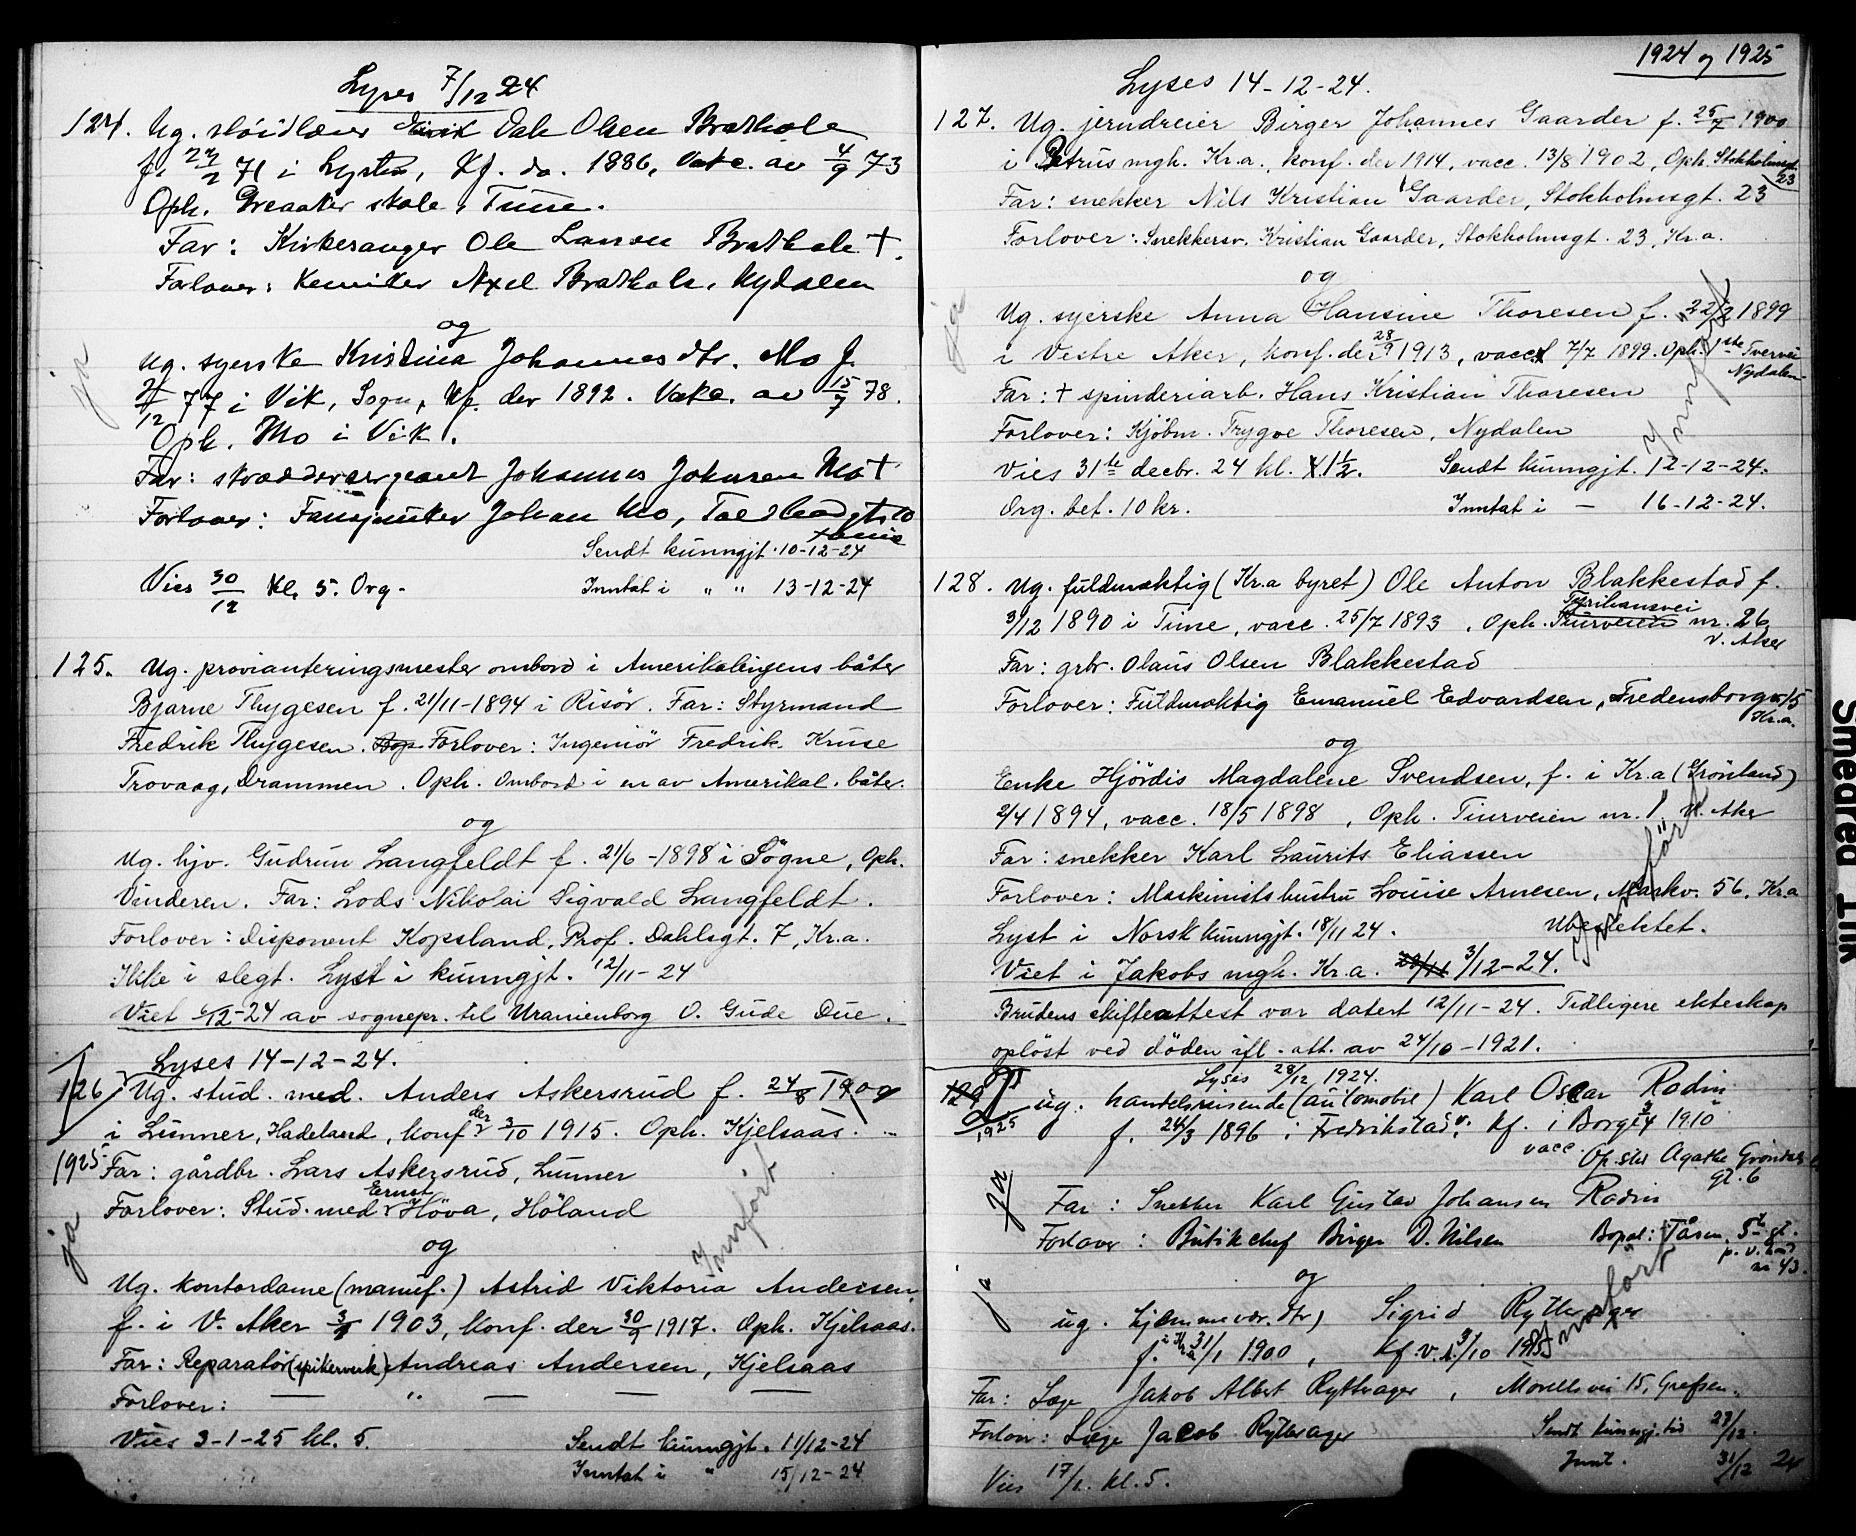 Lyses 7/12 24
124. Ug. sløidlærer Eirik Dahl Olsen Brathole
f. 2/2 71 i Lyster, Kf. do. 1886, Vakc. av 4/9 73
Oph. Greaaker skole, Tune.
Far: Kirkesanger Ole Larsen Brathole +.
Forlover: Kemiker Axel Brathole, Nydalen
og
ja
Ug. syerske Kristina Johannesdtr. Mo f.
12 77 i Vik, Sogn, Kf. der 1892. Vakc. av 15/7 78.
Oph. Mo i Vik.
Far: skræddersergeant Johannes Johnsen Mo +
Forlover: Johan Mo,
Sendt kunngjt. 10-12-24
Vies 30/12 Kl. 5. Org-
Inntat i " " 13-12-24
125. Ug. provianteringsmester ombord i Amerikalinjens båter
Bjarne Thygesen f. 21/11-1894 i Risör. Far: Styrmand
Fredrik Thygesen. Forlover: Ingeniör Fredrik Kruse
Trovaag, Drammen. Oph. Ombord i en av Amerikal. båter.
og
Ug. hjv. Gudrun Langfeldt f. 21/6-1898 i Sögne, Oph.
Vinderen. Far: Lods Nikolai Sigvald Langfeldt.
Forlover: disponent Kopsland, Prof. Dahlsgt. 7, Kr.a.
Ikke i slegt. Lyst i kunngjt. 12/11-24
Viet 6/12-24 av sognepr. til Uranienborg O. Gude Due.
Lyses 14-12-24.
126 Ug. stud. med. Anders Askersrud f. 24/8 1900
i Lunner, Hadeland, konf. der 3/10 1915. Oph. Kjelsaas.
1925 Far: gårdbr. Lars Askersrud, Lunner
Forlover: Stud. med. Ernst Höva, Höland
ja
Innfört
og
Ug. kontordame (manuf.) Astrid Viktoria Andersen,
f. i V. Aker 3/9 1903, konf. der 30/9 1917. Oph. Kjelsaas.
Far: Reparatör (spikerverk) Andreas Andersen, Kjelsaas
Forlover: — " — — —
Vies 3-1-25 kl. 5.
Sendt kunngjt. 11/12-24
Inntat i " 15/12-24
1924 og 1925
Lyses 14-12-24.
127. Ug. jerndreier Birger Johannes Gaarder f. 25/7 1900
i Petrus mgh. Kr.a., konf. der 1914, vacc. 13/8 1902, Oph. Stokholmsgt. 23
Far: snekker Nils Kristian Gaarder, Stokholmsgt. 23
Forlover: Snekkersv. Kristian Gaarder, Stokholmsgt. 23, Kr.a.
og
ja
Innfört
Ug. syerske Anna Hansine Thoresen f. 22/2 1899
i Vestre Aker, konf. der 28/9 1913, vacc. 7/7 1899. Oph. 1ste Tvervei Nydalen
Far: + spinderiarb. Hans Kristian Thoresen
Forlover: Kjöbm. Trygve Thoresen, Nydalen
Vies 31te decbr. 24 kl. 1½.
Sendt kunngjt. 12-12-24.
Org. bet. 10 kr.
Inntat i — 16-12-24.
128. Ug. fuldmæktig (Kr.a byret) Ole Anton Blakkestad f.
3/12 1890 i Time, vacc. 25/7 1893, Oph. Tiurveien Tyrihansvei nr. 26 V. Aker
Far: grbr. Olaus Olsen Blakkestad
Forlover: Fuldmæktig Emanuel Edvardsen, Fredensborgv. Kr.a.
og
Enke Hjördis Magdalene Svendsen, f. i Kr.a (Grönland)
2/4 1894, vacc. 18/5 1898, Oph. Tiurveien nr. 1, V. Aker
Far: snekker Karl Laurits Eliassen
Forlover: Maskinistshustru Louise Arnesen, Markv. 56, Kr.a
Lyst i Norsk kunngjt. 18/11 24.
Ubeslektet.
Innfört
Viet i Jakobs mgh. Kr.a. 29/11 3/12-24.
Brudens skifteattest var datert 12/11-24. Tidligere ekteskap
oplöst ved döden ifl. att. av 24/10-1921.
Lyses 28/12 1924.
129
1925
ug. handelsreisende (automobil) Karl Oscar Rodin
f. 24/3 1896 i Fredrikstad, Kf. i Borge 1910
vacc
Op.sted Agathe Gröndals gt. 6
ja
Far: Snekker Karl Gustav Johansen Rodin
Forlover: Butikchef Birger D. Nilsen
Bopæl: Tåsen,
og
ja
Innfört
ug. hjemmevær. dtr) Sigrid Rytterager
f. i Kra 31/1 1900, Kf. V. A 3/10 1915
Far: Læge Jakob Albert Rytterager, Morells vei 15, Grefsen.
Forlov: Læge Jacob Rytterager
Sendt kunngj. tid 29/12.
Vies 17/1. kl. 5.
Innt. 31/12 24
Smedred Tuk